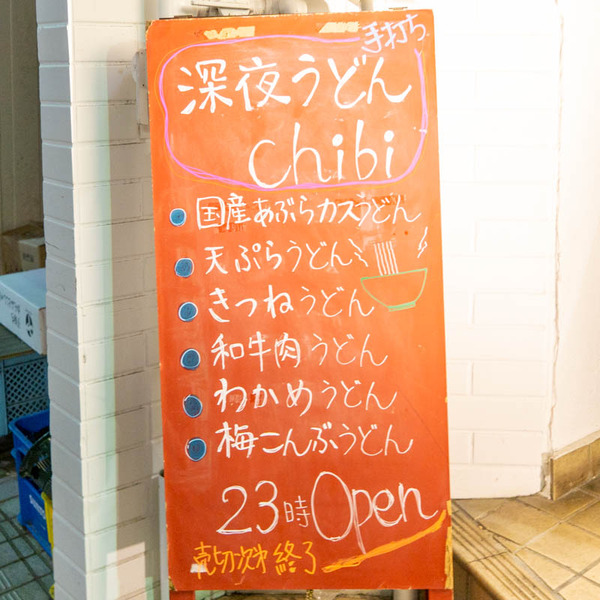 手打ち
深夜うどん
chibi
国産あぶらカスうどん
天ぷらうどん
きつねうどん
和牛肉うどん
わかめうどん
梅こんぶうどん
23時Open
売切次第終了